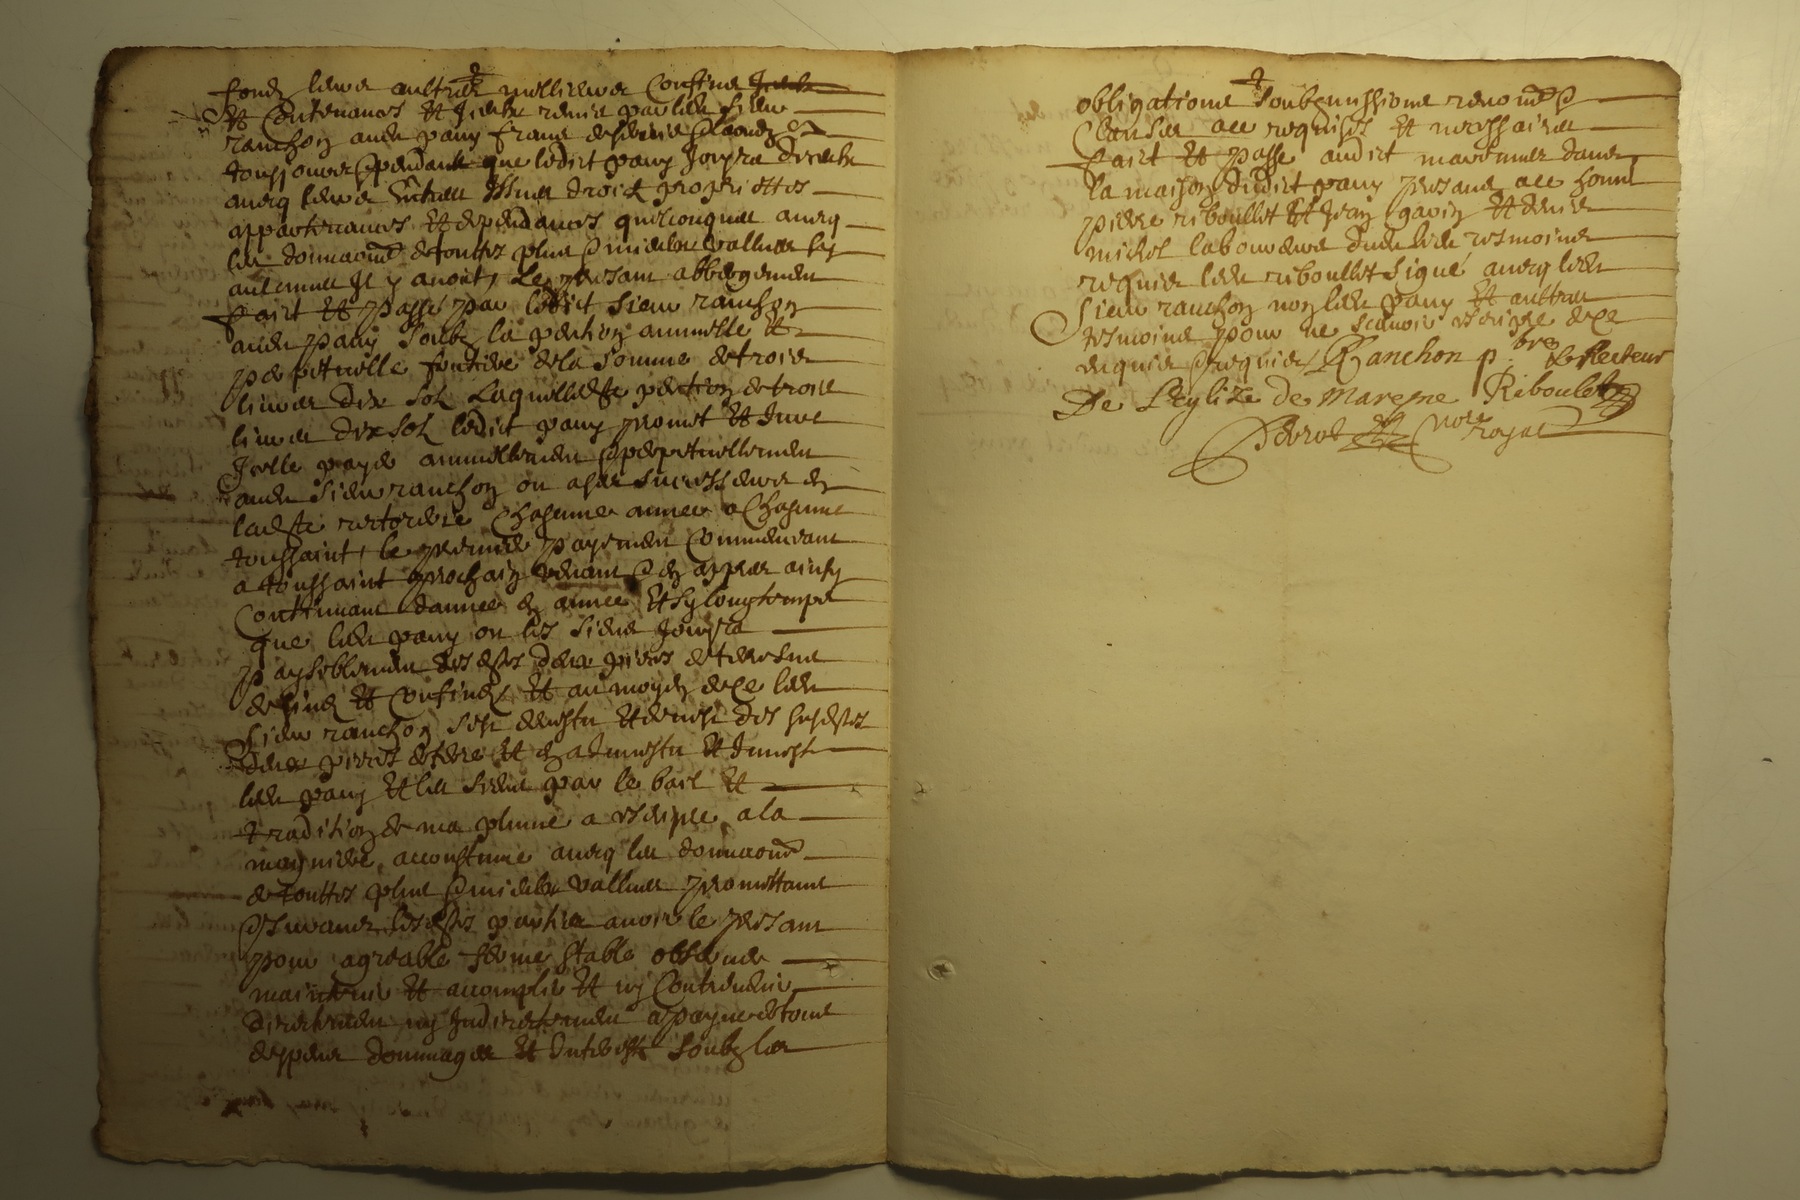 fondz leurs aultres meilleurs confins
et contenances et iceulx tenir par led sieur
ranchon aud pany franc
tousjours pendant que ledict pany jouyra diceulx
aveq leurs entrees issues droictz proprietes
appartenances et dependances quelconques aveq
les donnaone de touttes plus & mieulx vallues sy
aulcunes il y avoit, Le presant abbergement
faict et passé par ledict sieur ranchon
aud pany soubz la pention annuelle et
perpetuelle fonciere de la somme de trois
livres dix solz Laquelle dte pention de trois
livres dix solz ledict pany promet et jure
Icelle payer annuellement & perpetuellement
aud sieur ranchon ou a ses successeurs en
lad rectorerie chascune annee a chascune
toussaint, le premier payement commencant
a toussaint prochain venant & en appres ainsy
continuant dannee en annee et sy longtemps
que led pany ou les siens jouyra
paysiblement des dtes deux pieces de terre sus
et confines et au moyen de ce led
sieur ranchon sest devestu et devest des susdtes
deux pieces de terre et en a investu et invest
led pany et les siens par le bail et
tradition de ma plume a escripre a la
magniere accoustumee aveq les donnaone
de touttes plus & mieulx vallues promettant
& jurant lesdtes parties avoir le presant
pour agreable ferme stable observer
maintenir et accomplir et ny contrevenir
directement ny indirectement a payne de tous
despens dommages et interestz soubz les
obligations soubzmissions renone &
clauses ace requises et necessaires
faict et passé audict mareymes dans
la maison dudict pany presans ace honnt
pierre riboullet et jean gavin et
michel laboureurs dud lieu tesmoins
requis led riboullet signé aveq led
sieur ranchon non led pany et aultres
tesmoins pour ne scavoir escripre de ce
enquis & requis Ranchon p.bre Recteur
De L'eglize de Maresme Riboulet
note royal